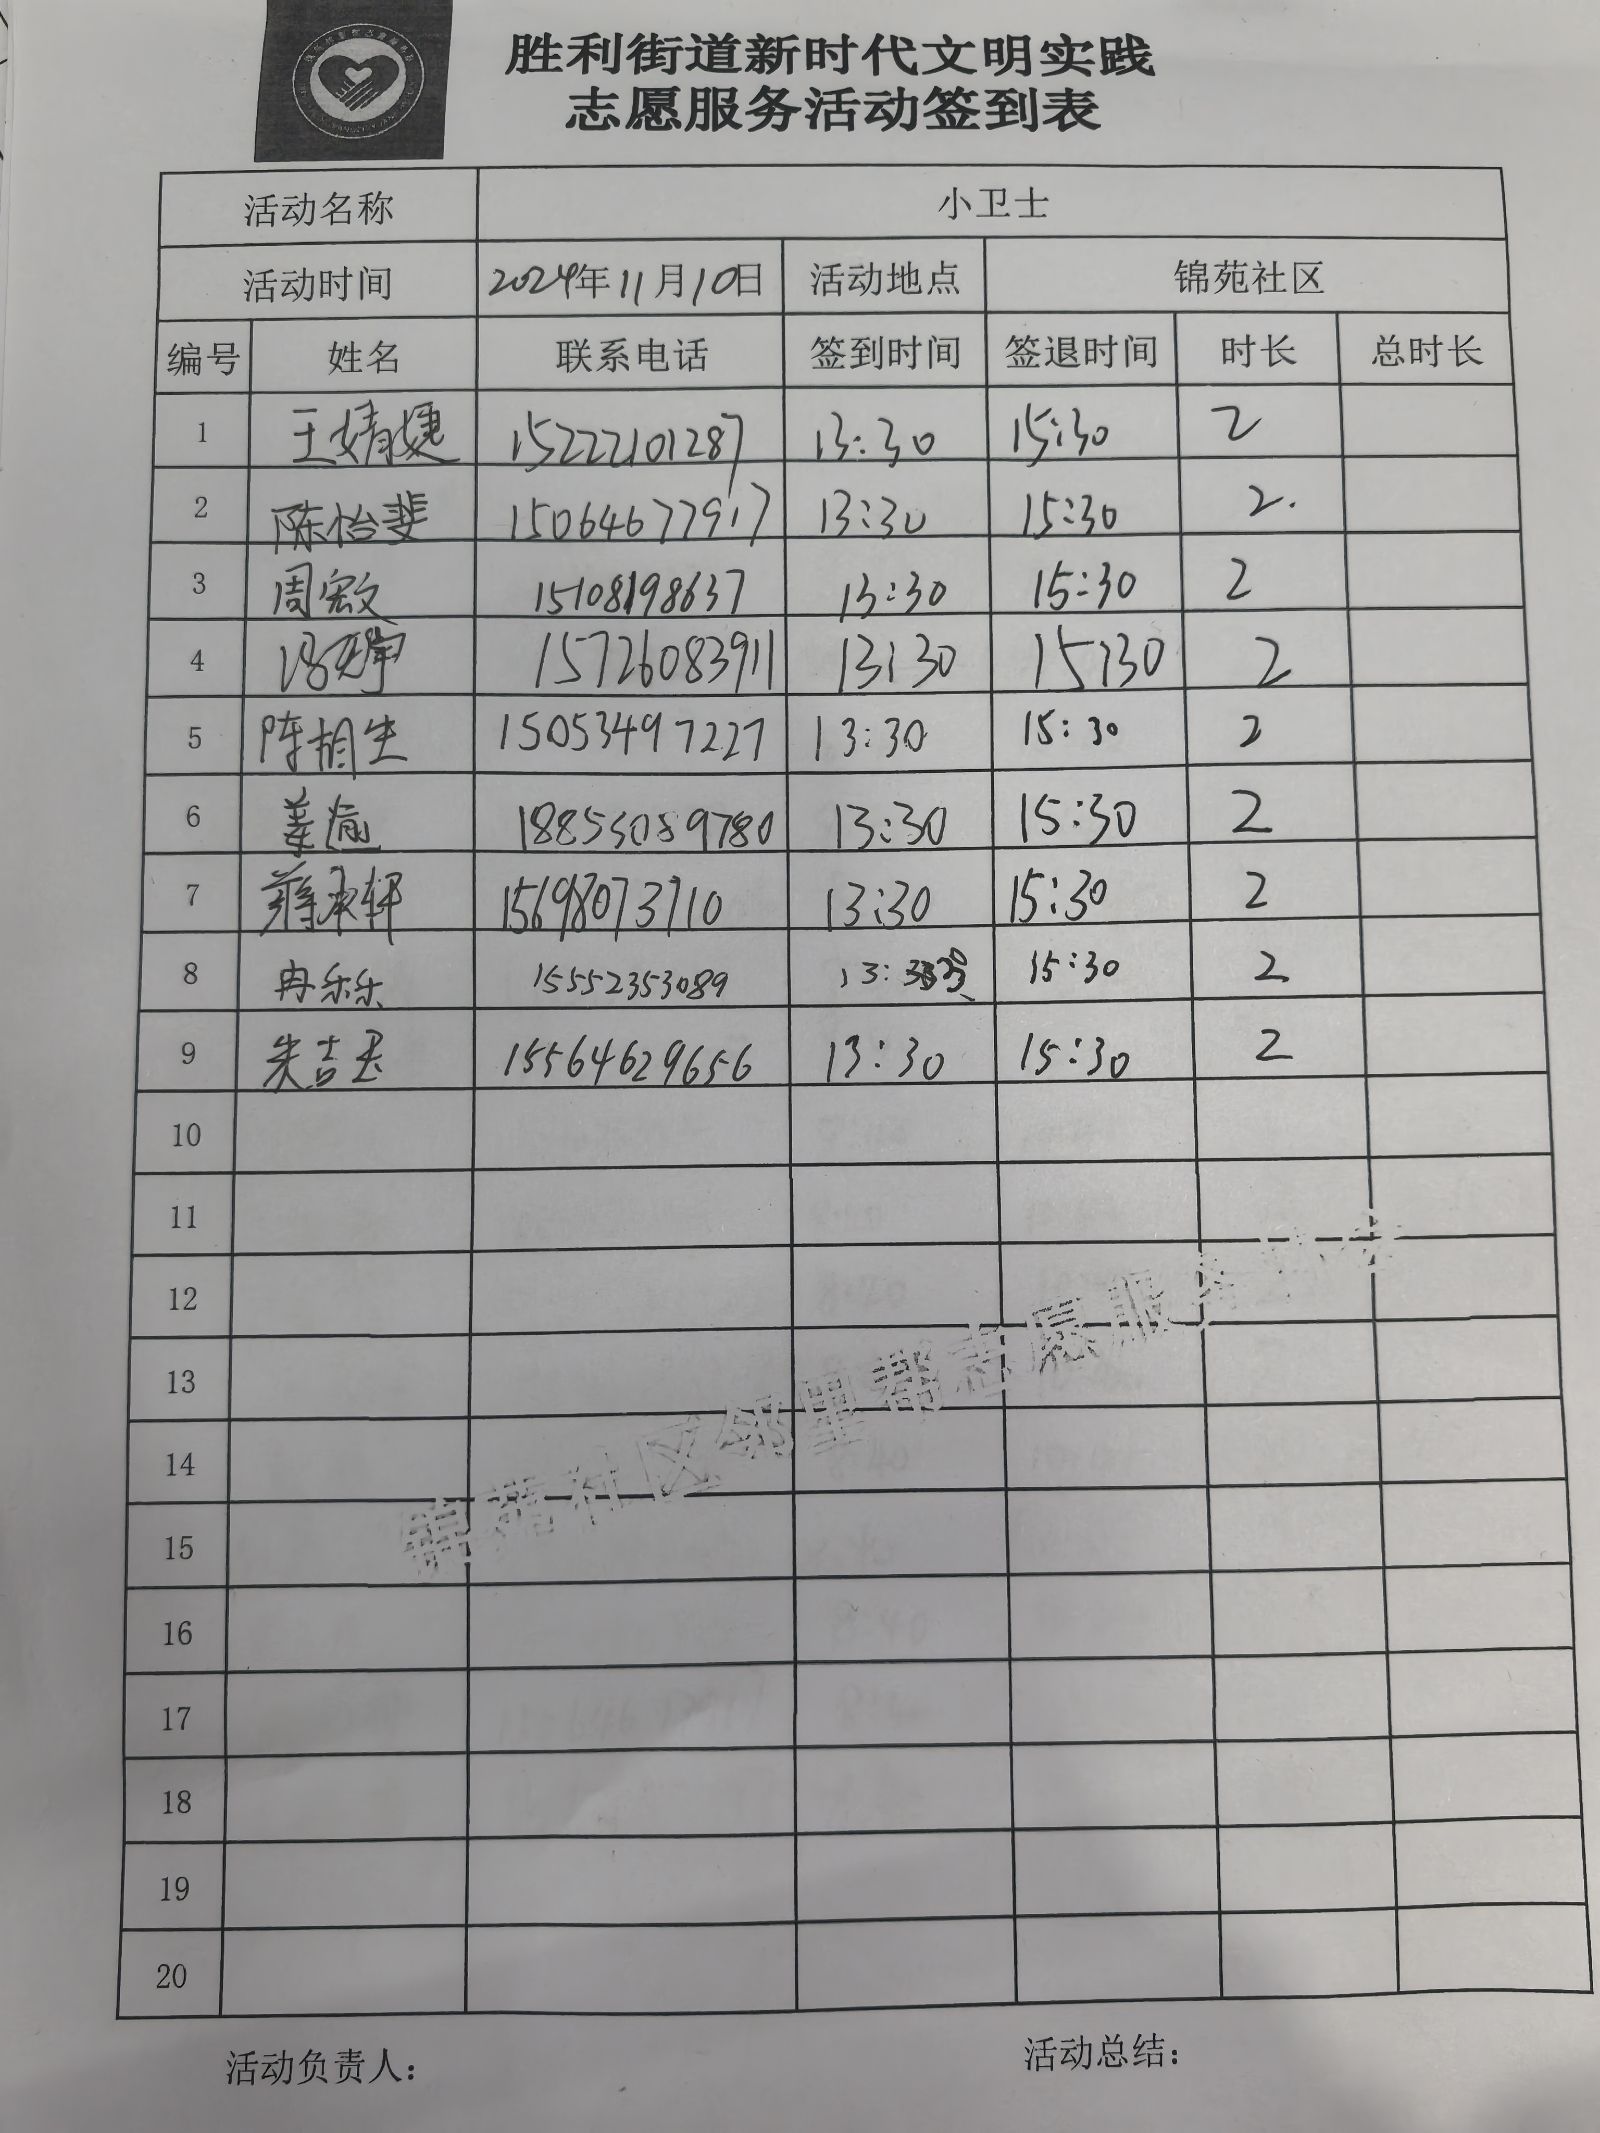 胜利街道新时代文明实践
志愿服务活动签到表
活动名称 小卫士
活动时间 2024年11月10日 活动地点 锦苑社区
编号 姓名 联系电话 签到时间 签退时间 时长 总时长
1 王婧婕 15222101287 13:30 15:30 2
2 陈怡斐 15064677917 13:30 15:30 2.
3 周宸文 15108198637 13:30 15:30 2
4 冯 15726083911 13:30 15:30 2
5 陈相生 15053497227 13:30 15:30 2
6 姜瑜 18853089780 13:30 15:30 2
7 蒋承轩 15698073710 13:30 15:30 2
8 冉乐乐 15552353089 13: 15:30 2
9 朱吉玉 15564629656 13:30 15:30 2
10
11
12
13
14
15
16
17
18
19
20
锦苑社区邻里帮志愿服务
活动负责人： 活动总结：